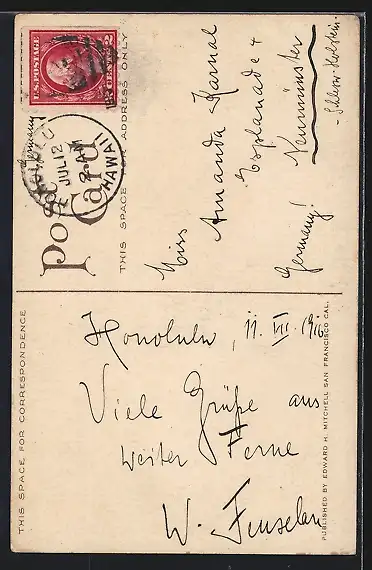 U.S. POSTAGE
2 CENTS 2
JUL 12
HAWAII
Post Card
THIS SPACE FOR ADDRESS ONLY
Germany
Miss
Amanda Karnal
Esplanade 4
Neumünster
- Schlesw. Holstein. -
Germany!
THIS SPACE FOR CORRESPONDENCE
Honolulu, 11. VII. 1916
Viele Grüße aus
weiter Ferne
W. Fenselau
PUBLISHED BY EDWARD H. MITCHELL SAN FRANCISCO CAL.